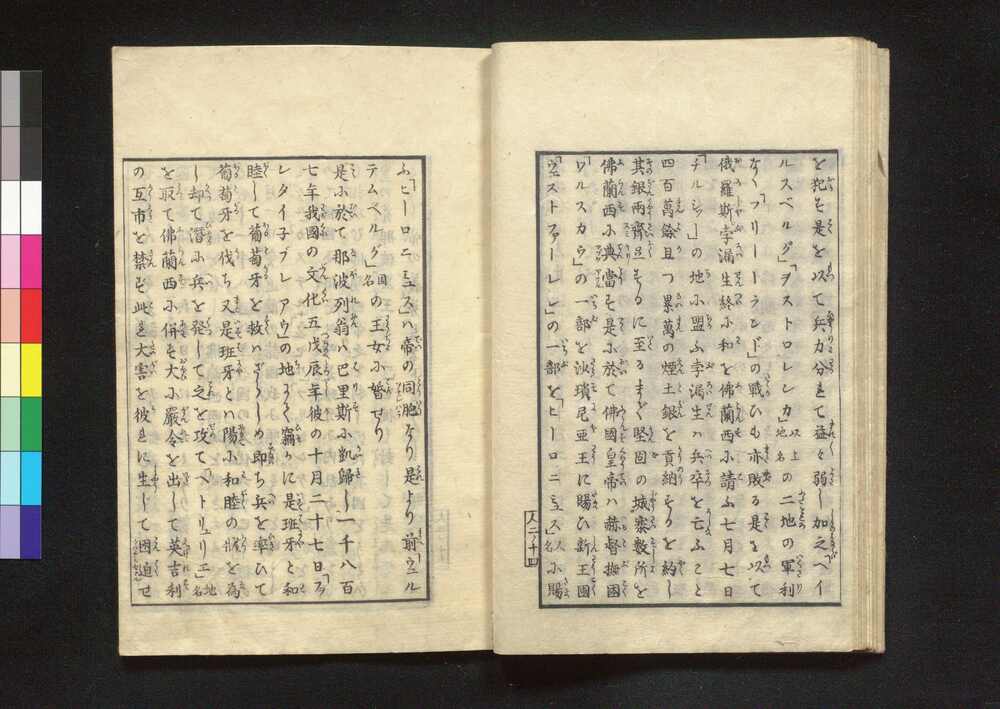 を犯す是を以て兵力分れて益々弱し加之「ヘイ
ルスベルグ」「ヲストロレンカ」以上地名の二地の軍利
なく「フリーﾞランド」の戦ひも亦敗る是を以て
俄羅斯孛漏生終小和を佛蘭西小請ふ七月七日
「チルシット」の地小盟ふ孛漏生ハ兵卒を云ふこと
四百萬餘且つ累萬の煙土銀を貢納するを約し
其銀兩齊且するに至るまで堅固の城寨数所を
佛蘭西小典當す是小於て佛國皇帝ハ赫督撫國
「ワルスカウ」の一部を沙瑣尼亜王に賜ひ新王國
「ウェストファーレン」の一部を「ヒーロニミュス」人名小賜
人二ノ十四
ふ「ヒーロニミュス」ハ帝の同胞なり是より前「ウュル
テムベルグ」國名の王女小婚せり
是小於て那波列翁ハ巴里斯小凱歸し一千八百
七年我國の文化五戊辰年彼の十月二十七日「フヲ
レタイ子ブレアウ」の地にて竊かに是班牙と和
睦して葡萄牙を救ハざらしめ即ち兵を率ひて
葡萄牙を伐ち又是班牙とハ陽小和睦の状を為
し却て潛小兵を発して之を攻て「ヘトリュリエ」地名
を取て佛蘭西小併す大小嚴令を出して英吉利
の互市を禁ず此れ大害を彼れに生して困迫せ